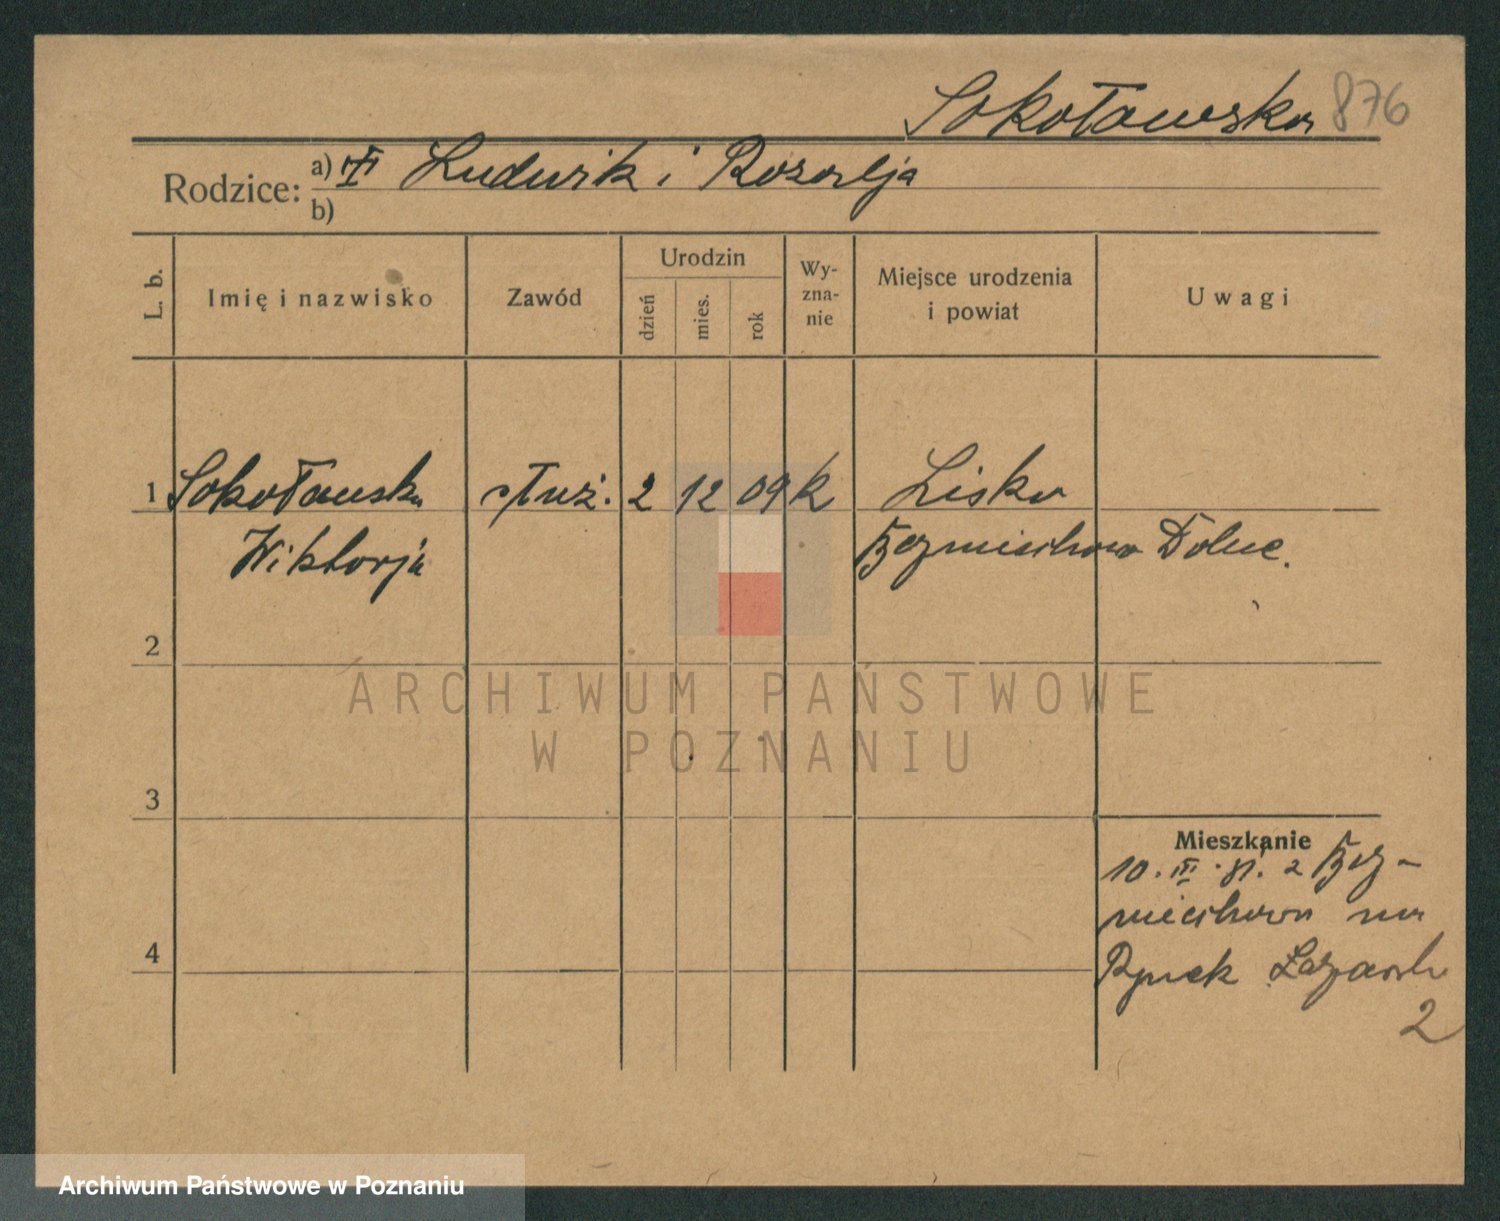 Sokołowska 876
Rodzice: a) Ludwik i Rozalja
b)
L. b.
Imię i nazwisko
Zawód
Urodzin
dzień
mies.
rok
Wy-
zna-
nie
Miejsce urodzenia
i powiat
Uwagi
1 Sokołowska służ. 2 12 09 k Lisko
Wiktorja Bezmiechowa Dolne.
2
3
4
Mieszkanie
10. III. 31. z Bez-
miechowa na
Rynek Łazarski
2
ARCHIWUM PAŃSTWOWE
W POZNANIU
Archiwum Państwowe w Poznaniu